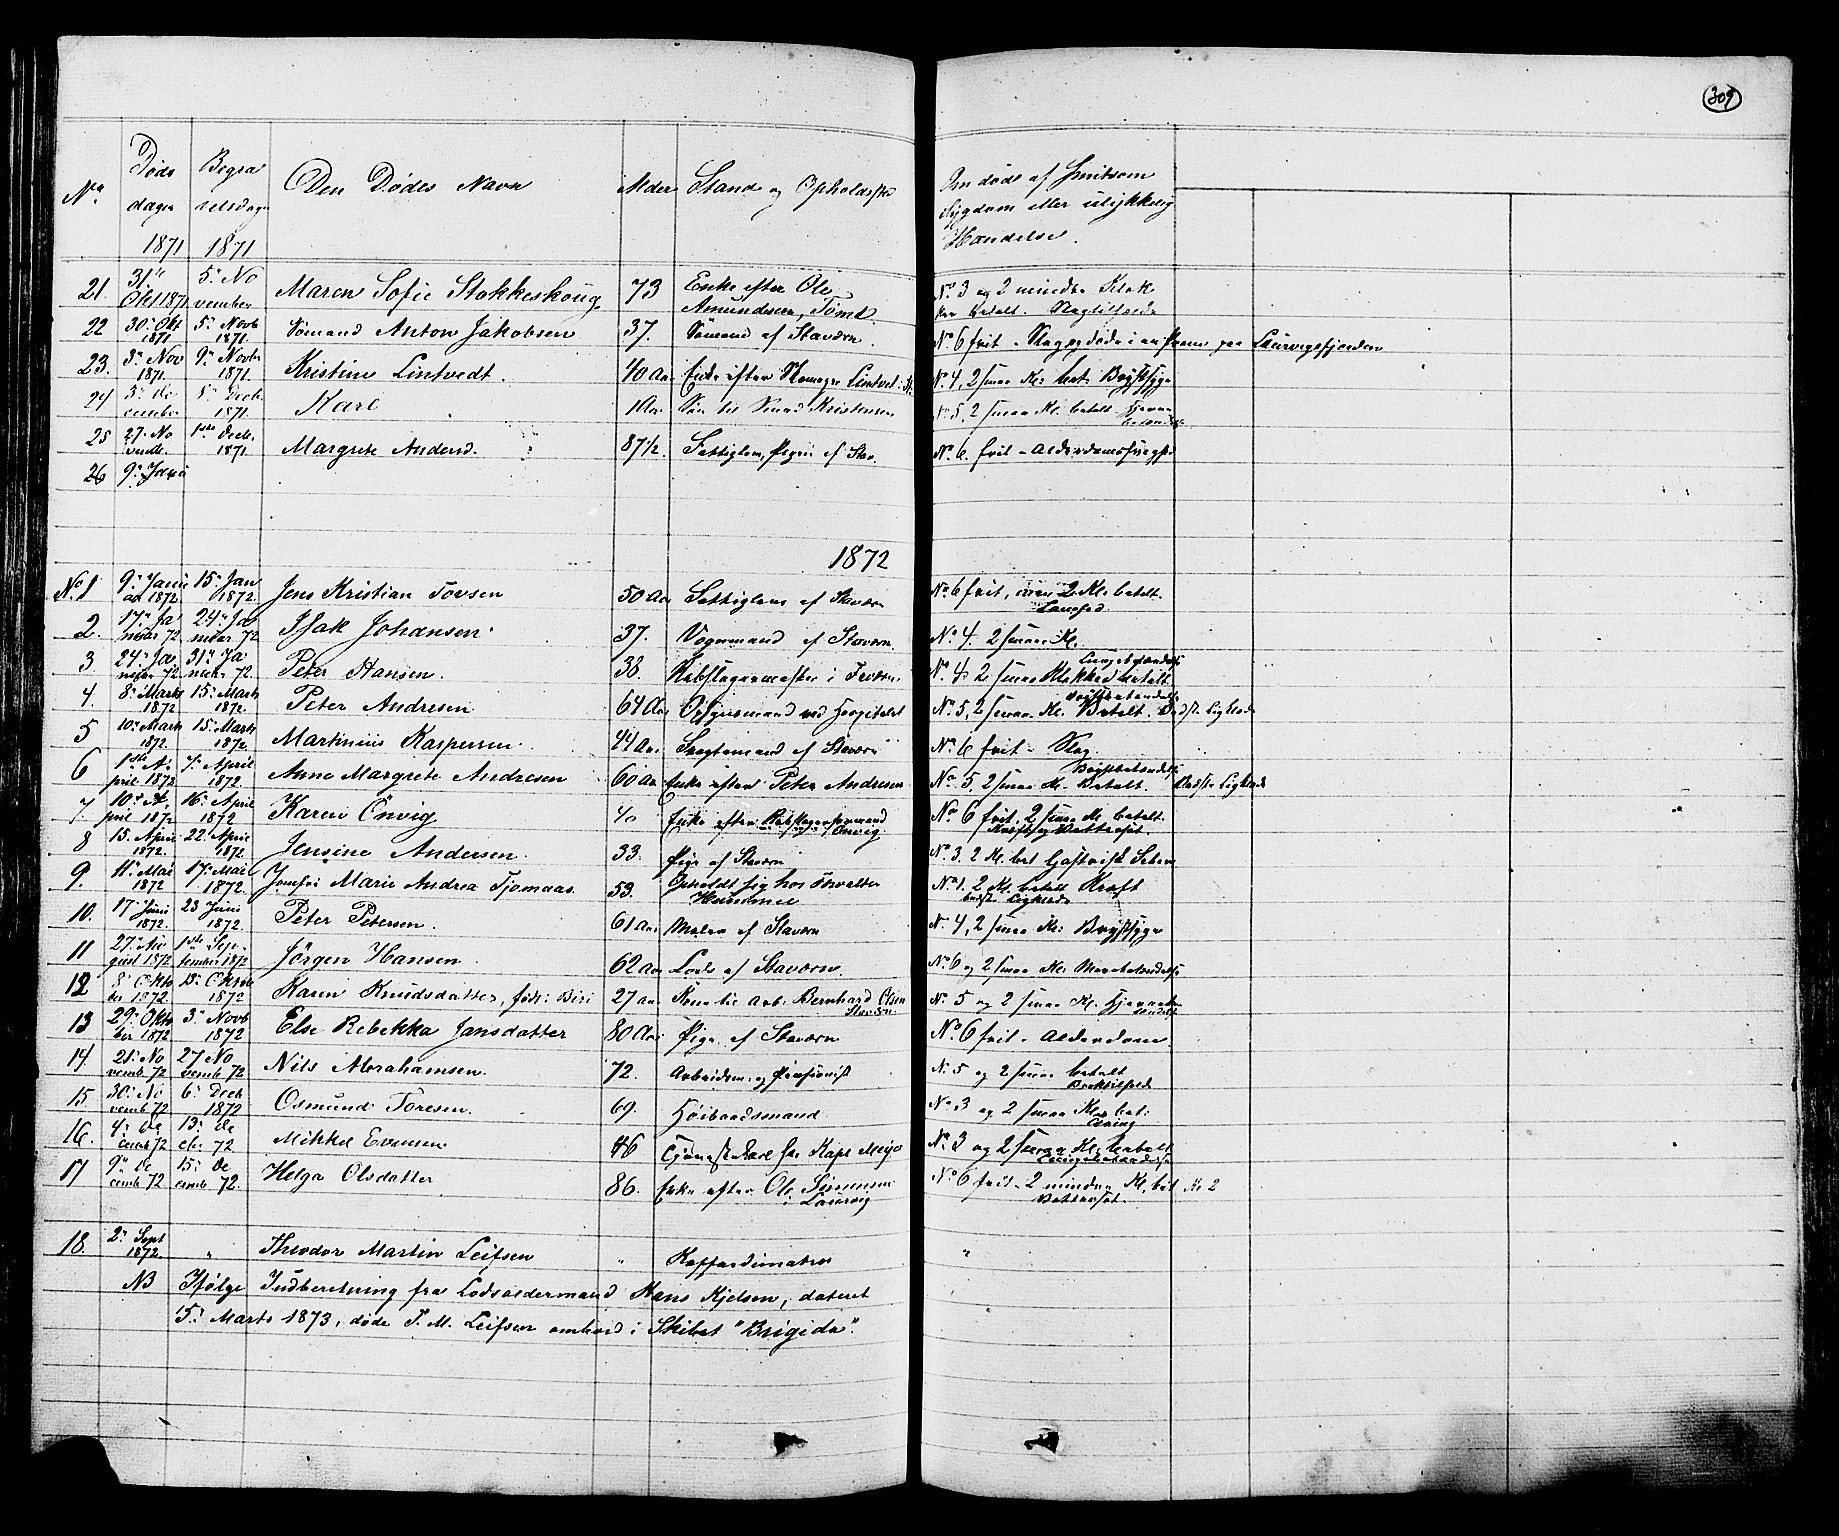 309
No Døds dagen Begra velsdag Den Dødes Navn Alder Stand og Opholdsst Om død af Smitsom Sygdom eller ulykkelig Hændelse.
1871 1871
21. 31te Okt 1871 5te November Maren Sofie Stokkeskoug 73 Enke efter Ole Amundsen, Tomt. No 3 og 2 mindre Klok ker betalt.
22 30te Okt 1871 5te Novb 1871. Sømand Anton Jakobsen 37. Sømand af Stavern. No 6 frit - Slag døde i en Pram paa Laurvigsfjorden
23. 3die Nov 1871. 9de Novbr 1871. Kristine Lintvedt. 40 Aar Enke efter Lintvedt No. 4, 2 smaa Kl: bet. Brystsyge
24 5te De cember 5te Decb 1871. Karl 1 Aar Søn til Kristensen No. 5. 2 smaa Kl. betalt
25 27de No vemb. 1ste Decbr. 1871 Margrete Andersd. 87 1/2. Fattiglem, Pigen af Stav. No. 6. frit - Alderdomssvaghed
26 9de Janu
1872
No. 1 9de Janu ar 1872. 15de Jan 1872. Jens Kristian Tovsen 50 Aar Fattiglem af Stavern No 6 frit, 2 Kl. betalt.
2. 17de Ja nuar 72 24de Ja nuar 72 Isak Johansen. 37. Vognmand af Stavern No. 4. 2 smaa Kl.
3 24de Ja nuar 72 31te Ja nuar 72. Peter Hansen. 38. Rebslagermester i Fredværn No. 4, 2 smaa Klokker betalt. Lungebetændelse
4. 8de Marts 1872 15de Marts 1872. Peter Andresen 64 Aar Opsynsmand ved Hospitalet No. 5, 2 smaa Kl. Betalt. Brystbetændelse Bedste Ligklæde
5 10de Marts 1872. 15de Marts 1872. Martinius Kaspersen. 44 Aar af Stavern No. 6 frit - Slag.
6 1ste A pril 1872 7de April 1872. Anne Margrete Andresen 60 Aar Enke efter Peter Andresen No. 5. 2 smaa Kl. Betalt. Brystbetændelse Bedste Ligklæde
7. 10de A pril 1872 16de April 1872 Karen Önvig 40 Enke efter Rebslagersvend Önvig No 6 frit. 2 smaa Kl. betalt. Kræft og Vattersot.
8 15. April 1872. 22. April 1872. Jensine Andersen. 33. Pige af Stavern No. 3. 2 Kl. bet Gastrisk Feber
9. 11te Mai 1872 17de Mai 1872. Josefie Marie Andrea Tjomaas. 53. Opholdt sig hos Forvalter No. 1. 2 Kl. betalt Kræft bedste Ligklæde
10. 17 Juni 1872. 23 Juni 1872. Peter Petersen. 61 Aar Maler af Stavern No. 4, 2 smaa Kl: Brystsyge
11 27de Au gust 1872 1ste Sep tember 1872 Jörgen Hansen. 62 Aar Lods af Stavern. No. 6 og 2 smaa Kl: Mavebetændelse
12 8de Okto ber 1872. 13de Oktob 1872 Karen Knudsdatter, født: Biri 27 aar Kone til Arb. Bernhard Olsen Stavern. No 5 og 2 smaa Kl.
13 29de Okto ber 1872 3die Novb 1872 Else Rebekka Jansdatter 80 Aar Pige af Stavern No. 6 frit - Alderdom
14. 21de No vemb. 72 27 No vemb. 72 Nils Abrahamsen. 72. Arbeidsm. og Pensionist No 5 og 2 smaa betalt
15 30te No vemb 72 6te Decb 1872 Osmund Toresen. 69. Höibaadsmand. No. 3 og 2 smaa Kl. bet:
16. 4de De cemb 72 13de De cbr. 72 Mikkel Evensen 46 Tjenestekarl for Kapt No. 3 og 2 smaa Kl. betalt Lungebetændelse
17 9de De cemb 72 15de De cemb 72. Helga Olsdatter 86. Enke efter Ole Sörensen Laurvig No 6 frit - 2 mindre Kl. bet Kl 2 Vattersot.
18. 2den Sept 1872. " Theodor Martin Leifsen " Koffardimatros "
NB Ifølge Indberetning fra Lodsoldermand Hans Kjelsen, dateret
5te Marts 1873, døde T. M. Leifsen ombord i Skibet "Brigida".